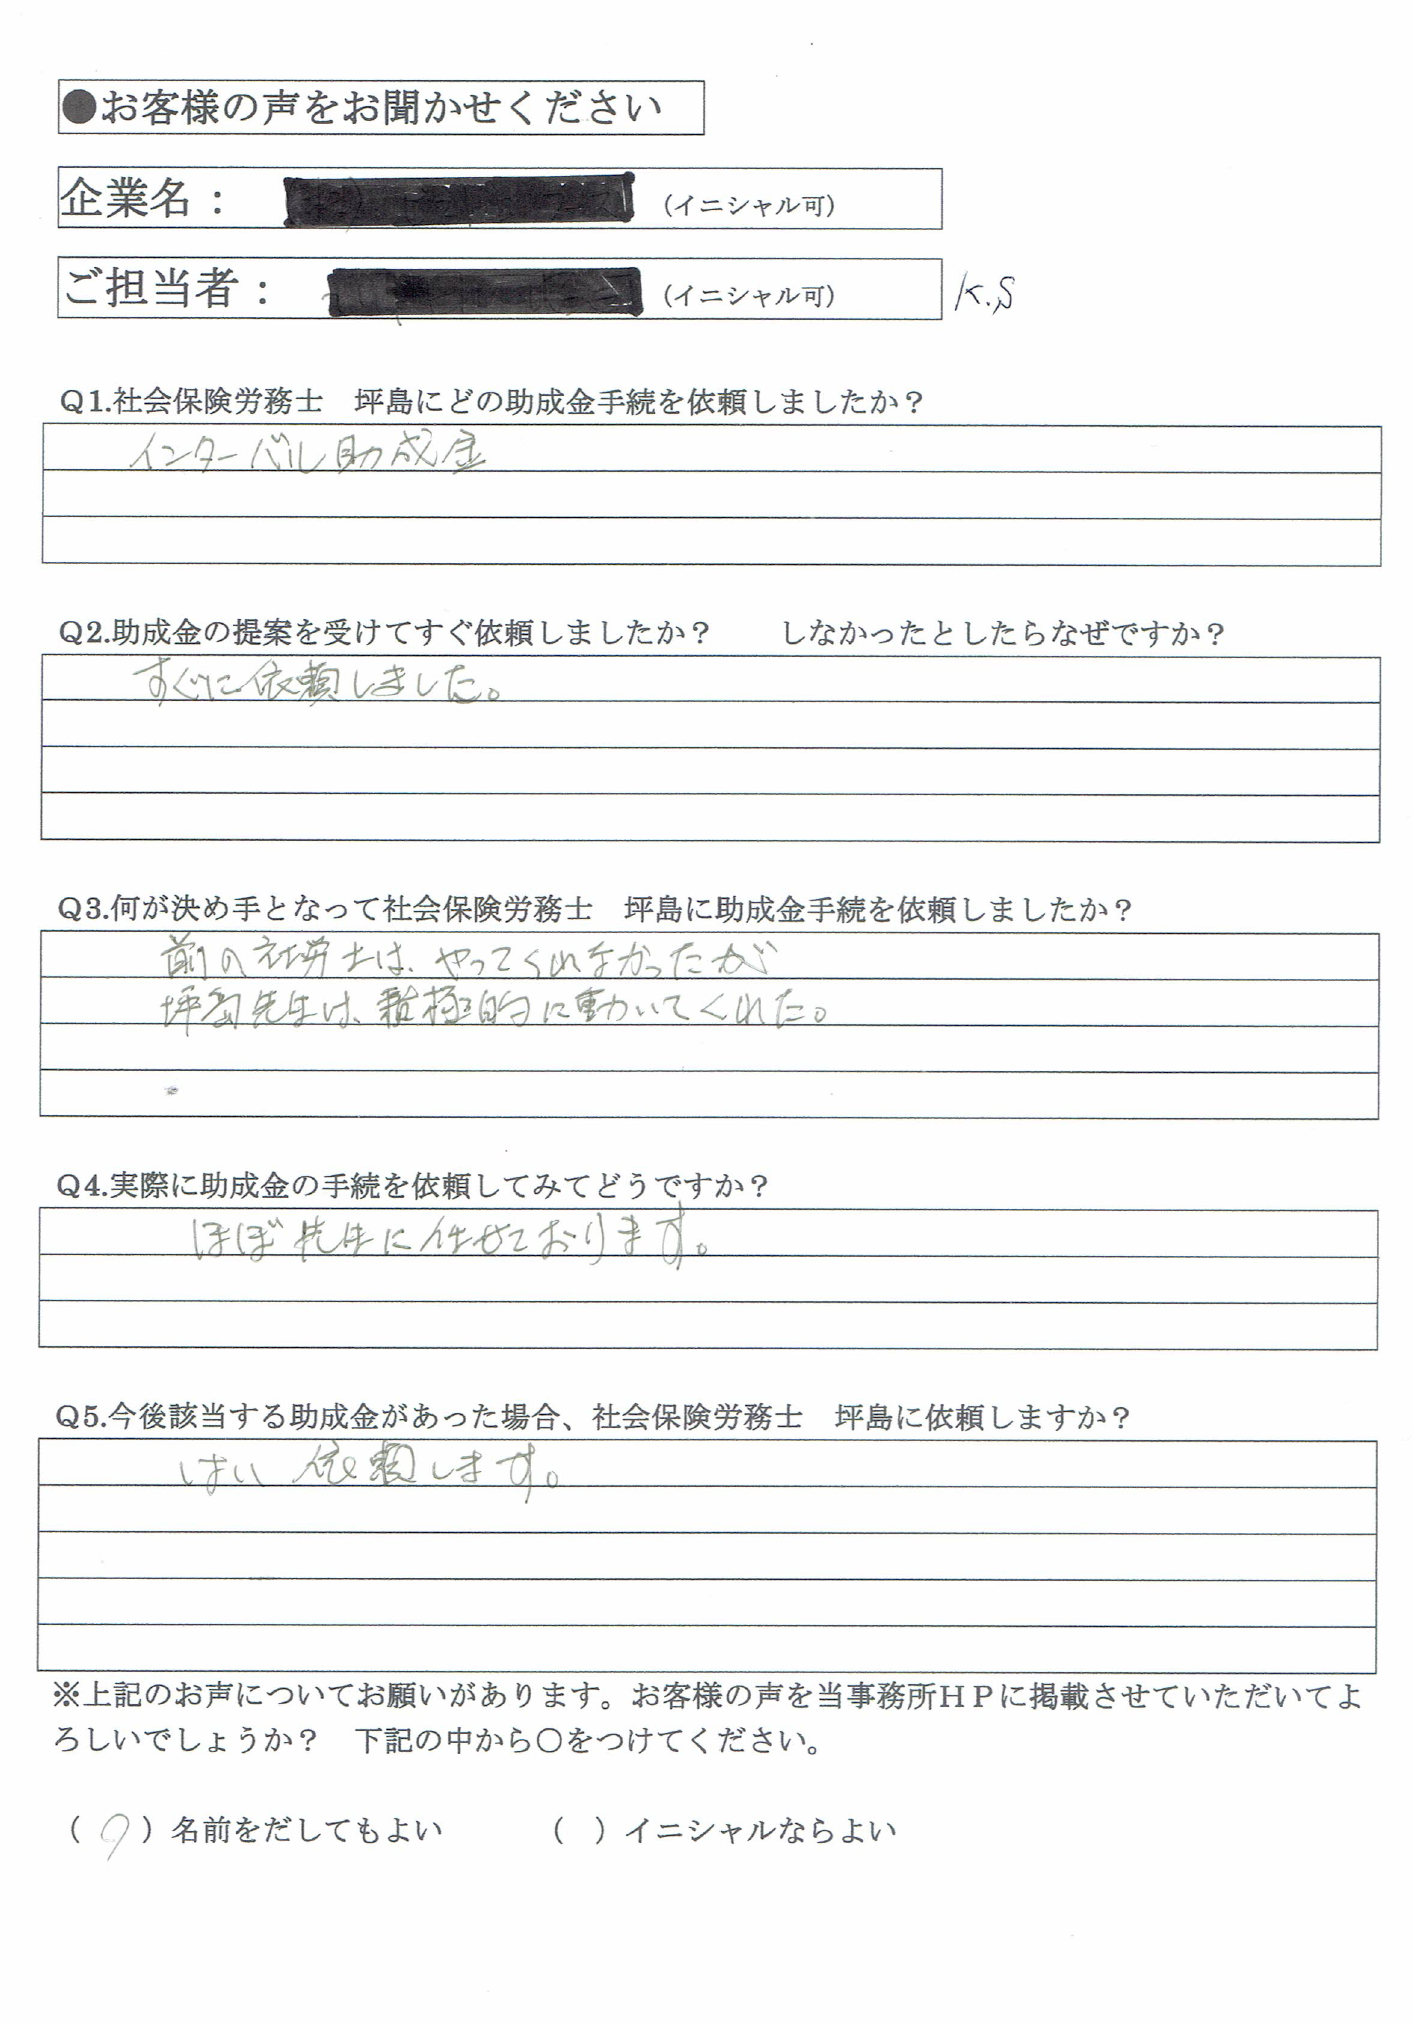 ●お客様の声をお聞かせください
企業名： （イニシャル可）
ご担当者： （イニシャル可） K.S
Q1.社会保険労務士　坪島にどの助成金手続を依頼しましたか？
インターバル助成金
Q2.助成金の提案を受けてすぐ依頼しましたか？　　しなかったとしたらなぜですか？
すぐに依頼しました。
Q3.何が決め手となって社会保険労務士　坪島に助成金手続を依頼しましたか？
前の社労士は、やってくれなかったが
坪島先生は、積極的に動いてくれた。
Q4.実際に助成金の手続を依頼してみてどうですか？
ほぼ先生に任せております。
Q5.今後該当する助成金があった場合、社会保険労務士　坪島に依頼しますか？
はい 依頼します。
※上記のお声についてお願いがあります。お客様の声を当事務所ＨＰに掲載させていただいてよ
ろしいでしょうか？　下記の中から○をつけてください。
（ ○ ）名前をだしてもよい　　　（　）イニシャルならよい